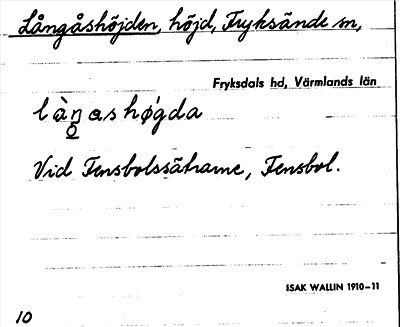 Långåshöjden, höjd, Fryksände sn,
Fryksdals hd, Värmlands län
là̱ŋashø̀gda
Vid Fensbolssätrarne, Fensbol.
ISAK WALLIN 1910–11
10